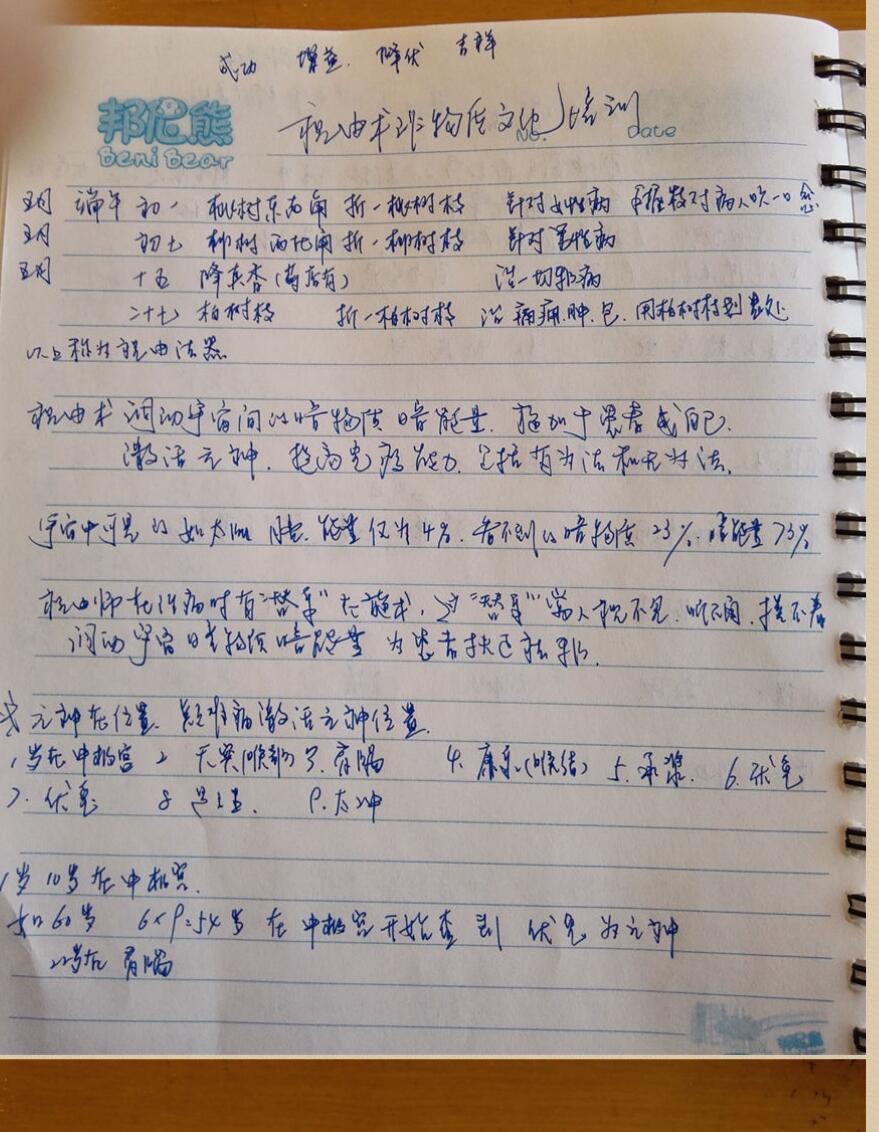 成功 增益 降伏 吉祥
邦尼熊
Beni Bear
祝由术非物质文化培训
No.
date
五月 端午 初一 桃树东南角 折一桃树枝 针对女性病 手握枝对病人吹一口念
五月 初七 柳树西北角折一柳树枝 针对男性病
五月 十五 降真香(药店有) 治一切邪病
二十七 柏树枝 折一柏树枝 治 痛 肿.包.用柏树枝划患处
以上称为祝由法器
祝由术 调动宇宙间的暗物质暗能量.施加于患者或自己.
激活元神.提高免疫能力.包括有为法和无为法.
宇宙中可见的如太阳 能量仅为4%.看不到的暗物质23%.暗能量73%
祝由师在治病时有"替身"在施术,这"替身"常人视不见.听不闻.摸不着
调动宇宙暗物质暗能量 为患者扶正祛邪.
元神在位置.疑难病激活元神位置.
1岁在中极宫 2 天突(喉部) 3. 4.廉泉.(喉结) 5.承浆. 6.伏兔
7.伏兔 8 足三里. 9.太冲
1岁10岁在中极宫.
如60岁 6×9=54岁 在中极宫开始查到 伏兔为元神